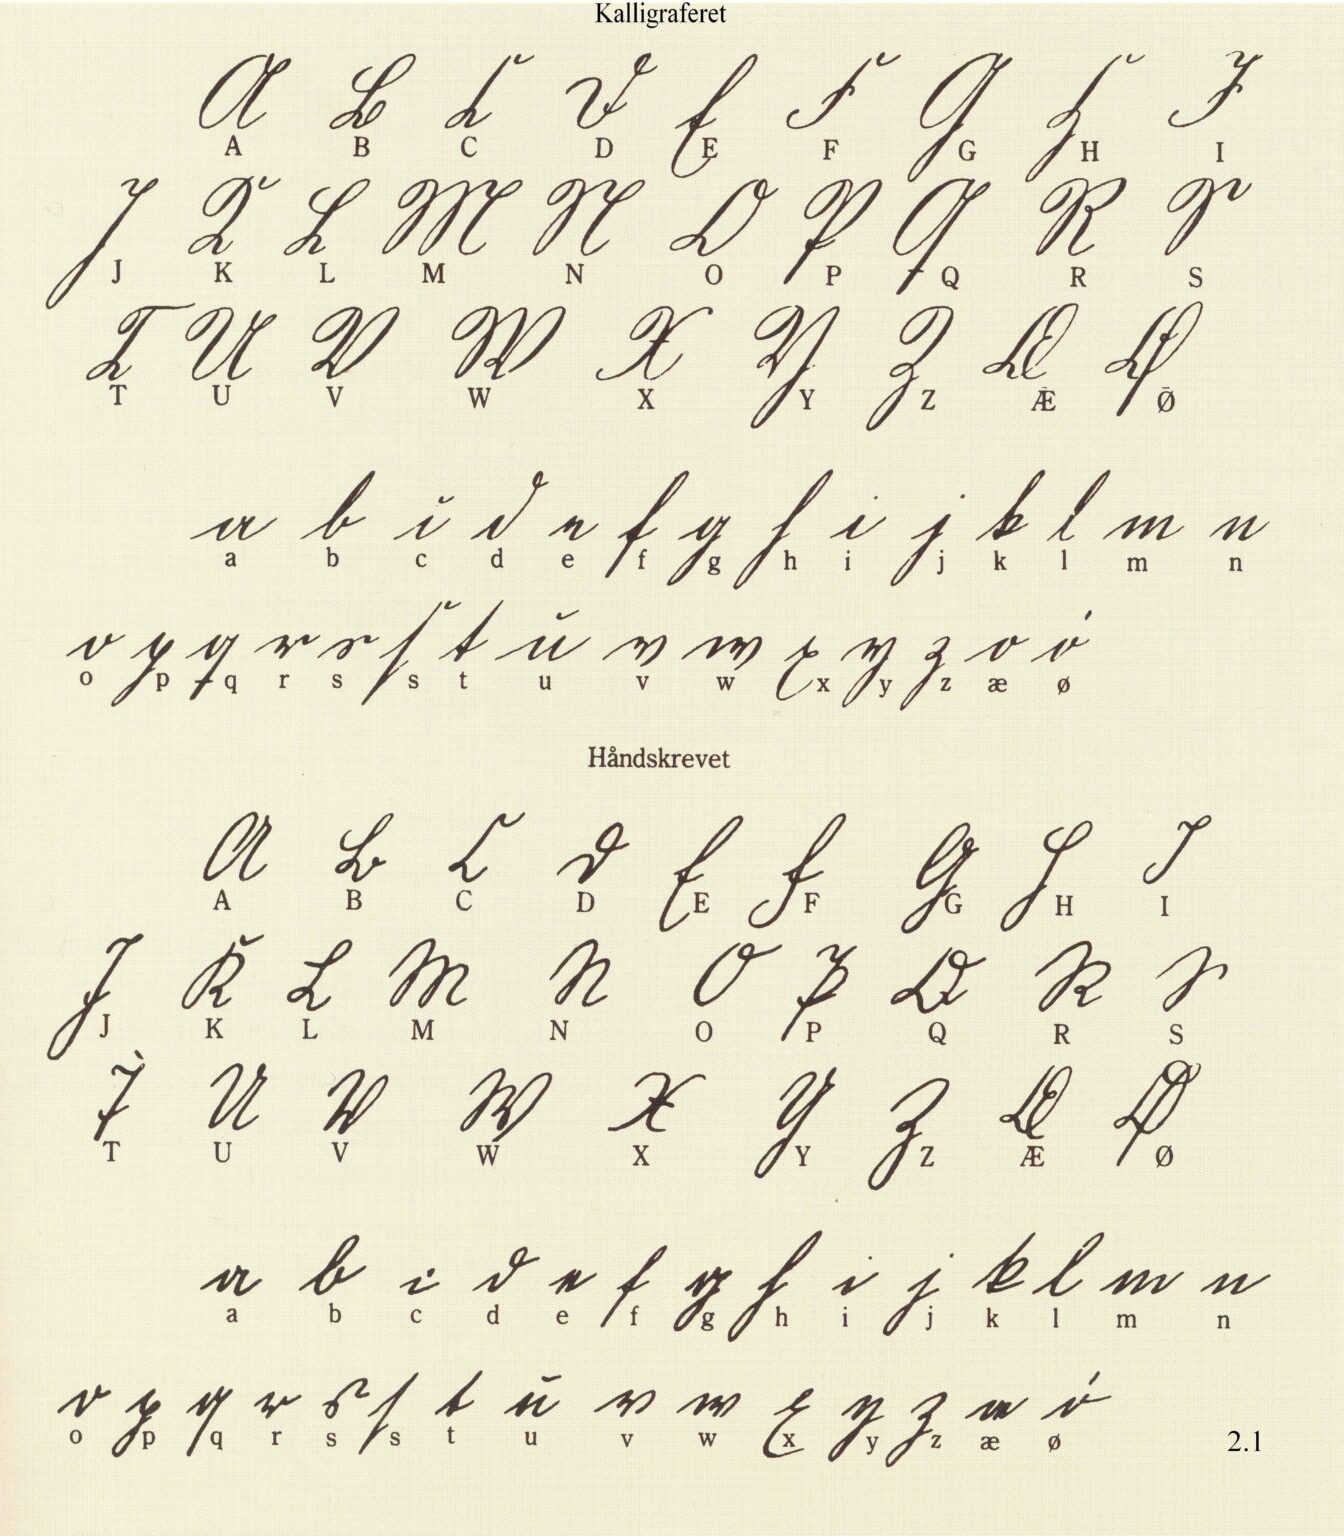 Kalligraferet
A B C D E F G H I
A B C D E F G H I
J K L M N O P Q R S
J K L M N O P Q R S
T U V W X Y Z Æ Ø
T U V W X Y Z Æ Ø
a b c d e f g h i j k l m n
a b c d e f g h i j k l m n
o p q r s s t u v w x y z æ ø
o p q r s s t u v w x y z æ ø
Håndskrevet
A B C D E F G H I
A B C D E F G H I
J K L M N O P Q R S
J K L M N O P Q R S
T U V W X Y Z Æ Ø
T U V W X Y Z Æ Ø
a b c d e f g h i j k l m n
a b c d e f g h i j k l m n
o p q r s s t u v w x y z æ ø
o p q r s s t u v w x y z æ ø
2.1